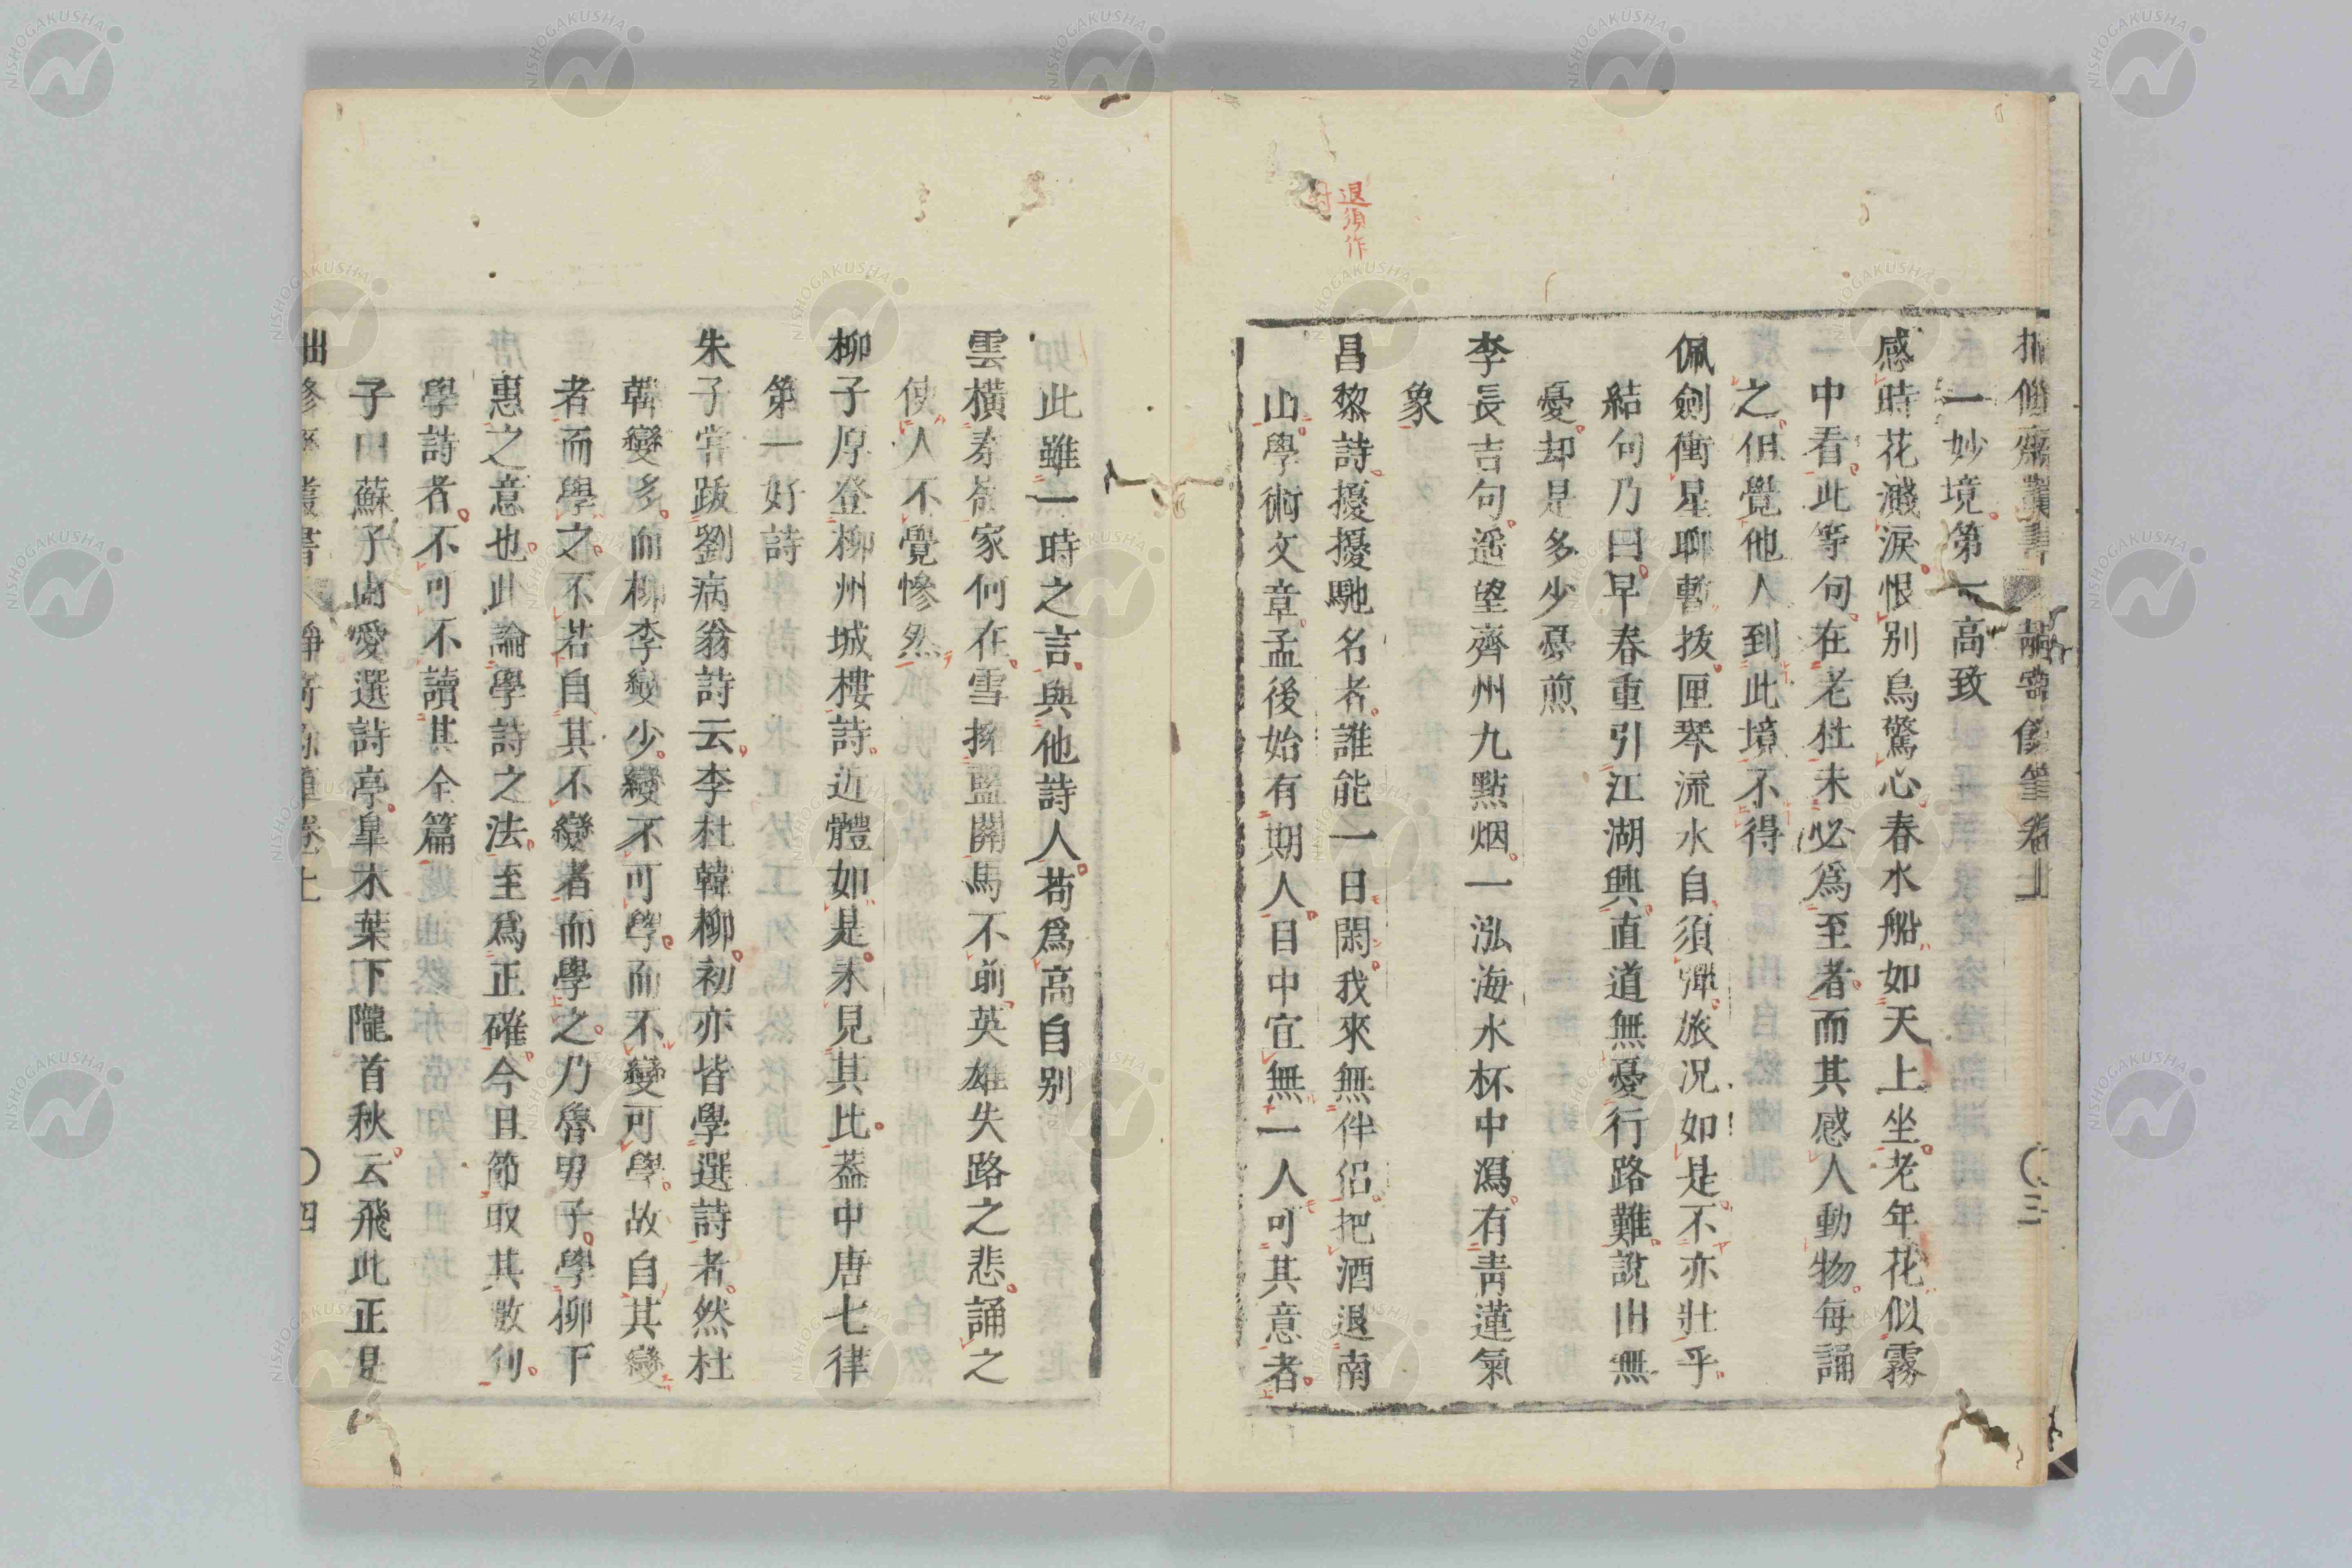 退須作
対
拙修齋叢書 靜寄餘筆卷上 〇三
一妙境第一高致
感時花濺淚恨別鳥驚心春水船如天上坐老年花似霧
中看此等句在老杜未必爲至者而其感人動物每誦
之但覺他人到此境不得
佩劍衝星聊暫拔匣琴流水自須彈旅況如是不亦壯乎
結句乃曰早春重引江湖興直道無憂行路難說旧無
憂却是多少憂煎
李長吉句遥望齊州九點烟一泓海水杯中瀉有靑蓮氣
象
昌黎詩擾擾馳名者誰能一日閑我來無伴侶把酒退南
山學術文章孟後始有期人目中宜無一人可其意者
此雖一時之言與他詩人苟爲高自別
雲橫秦嶺家何在雪擁藍關馬不前英雄失路之悲誦之
使人不覺慘然
柳子厚登柳州城樓詩近體如是未見其比蓋中唐七律
第一好詩
朱子嘗跋劉病翁詩云李杜韓柳初亦皆學選詩者然杜
韓變多而柳李變少變不可學而不變可學故自其變
者而學之不若自其不變者而學之乃魯男子學柳下
惠之意也此論學詩之法至爲正確今且節取其數句
學詩者不可不讀其全篇
子由蘇子由愛選詩亭皐木葉下隴首秋云飛此正是
拙修齋叢書 靜寄餘筆卷上 〇四